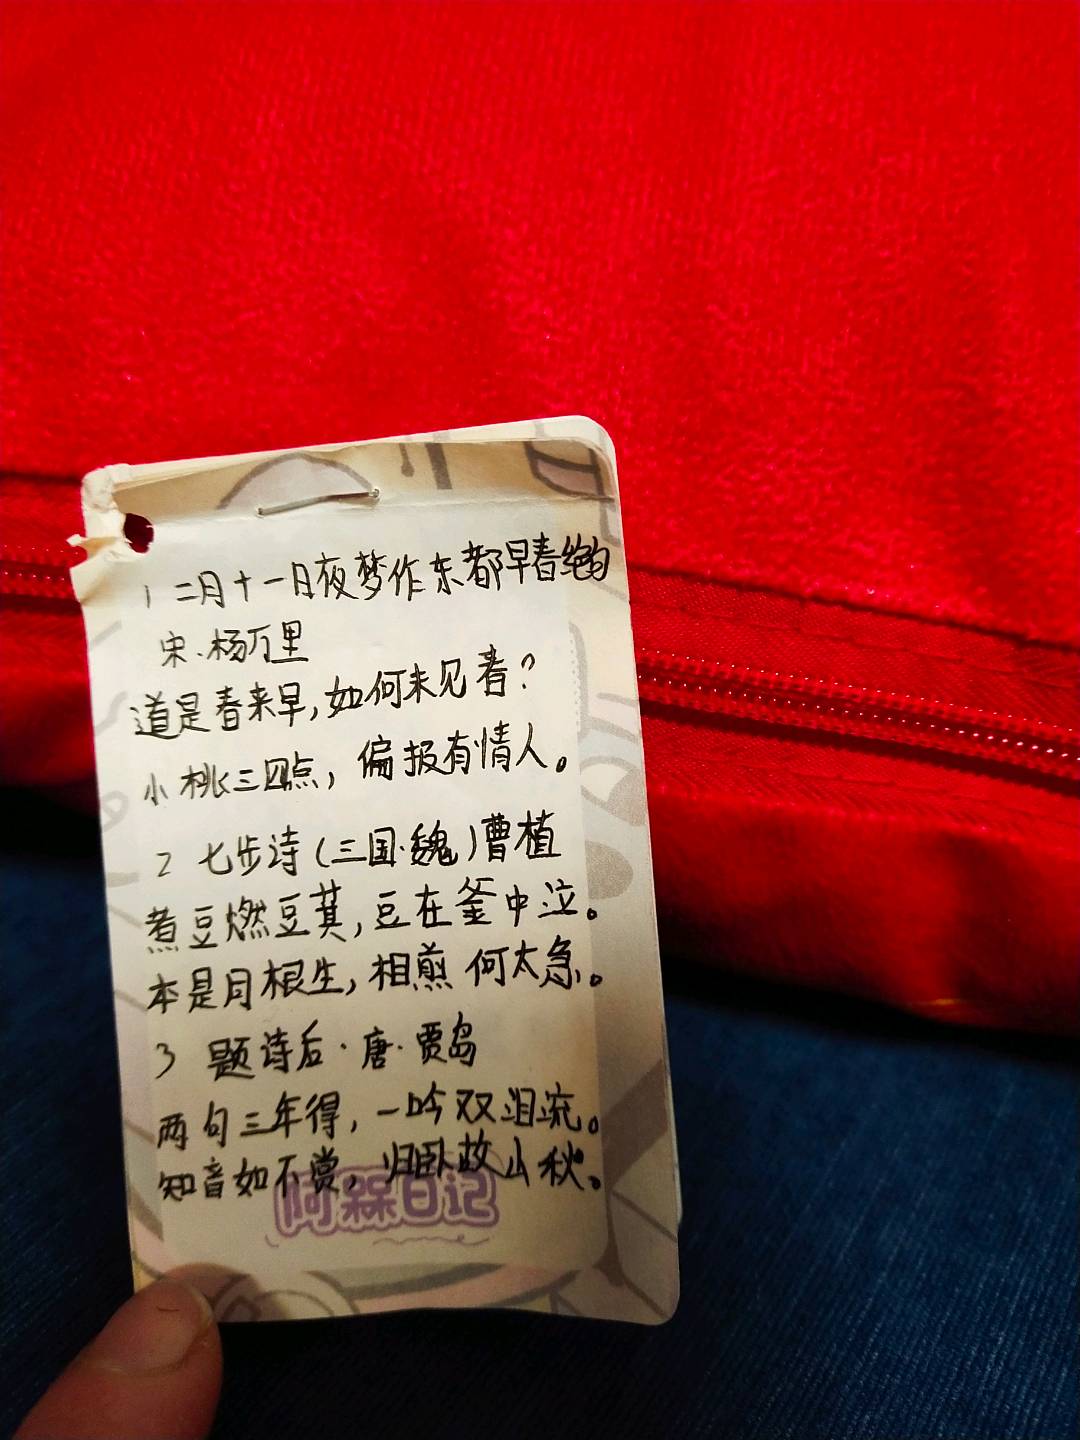 1 二月十一日夜梦作东都早春绝句
宋·杨万里
道是春来早，如何未见春？
小桃三四点，偏报有情人。
2 七步诗（三国·魏）曹植
煮豆燃豆萁，豆在釜中泣。
本是同根生，相煎何太急。
3 题诗后·唐·贾岛
两句三年得，一吟双泪流。
知音如不赏，归卧故山秋。
阿槑日记